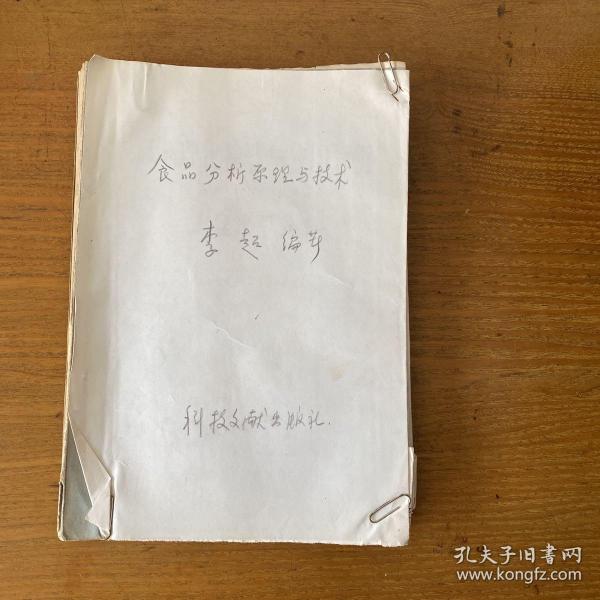 食品分析原理与技术
李超编著
科技文献出版社.
孔夫子旧书网
www.kongfz.com